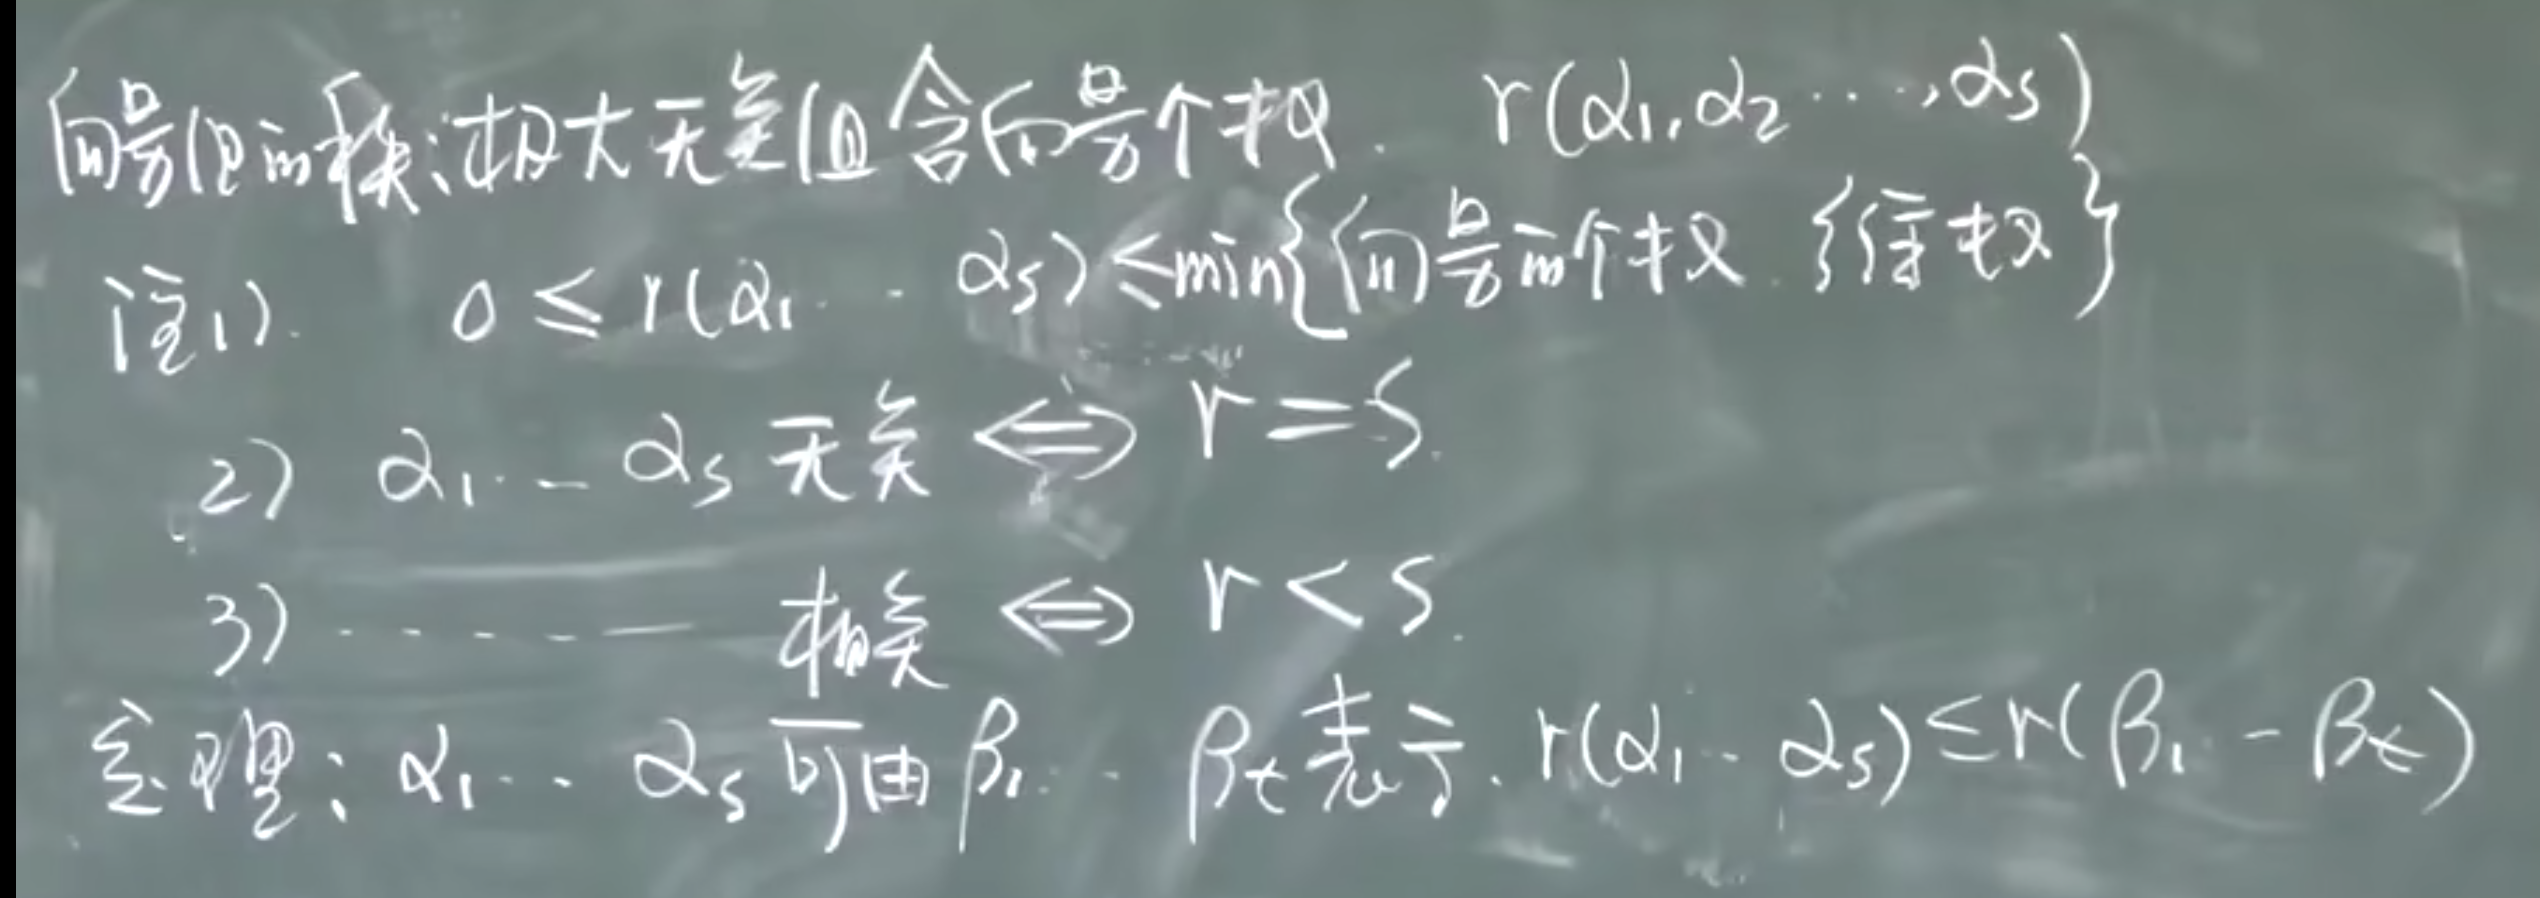 向量组的秩:极大无关组含向量个数. r(α₁,α₂…,αs)
注1). 0≤r(α₁…αs)≤min{向量的个数.维数}
2) α₁…αs无关⇔r=s.
3)………相关⇔r<s.
定理:α₁…αs可由β₁…βt表示.r(α₁…αs)≤r(β₁…βt)